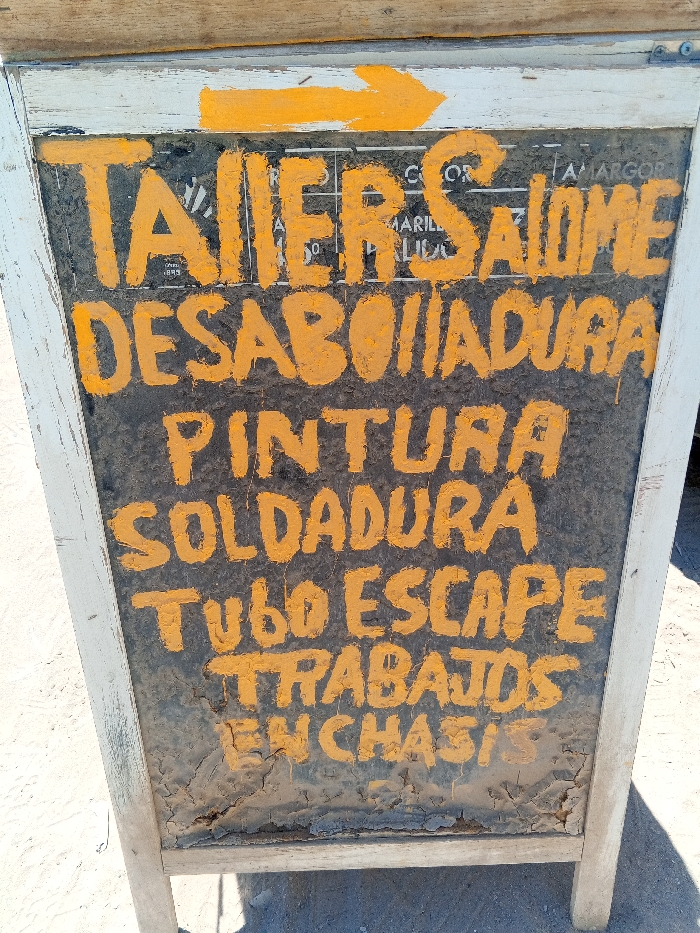 TAllER SAlOME
DESABOllADURA
PINTURA
SOLDADURA
TubO ESCAPE
TRABAJOS
EN CHASIS
COLOR
AMARGOR